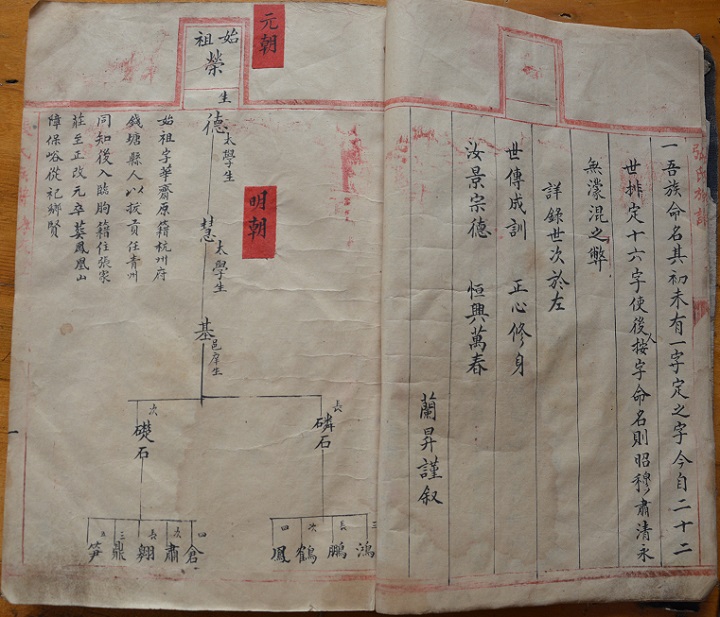 一吾族命名其初未有一字定之字今自二十二
世排定十六字使後人按字命名則昭穆肅清永
無濛混之弊
詳錄世次於左
世傳成訓 正心修身
汝景宗德 恒興萬春
蘭昇謹叙
元朝
始祖
榮
生
德
太學生
明朝
慧
太學生
基
邑庠生
長
磷石
次
礎石
三
鴻
長
鵬
次
鶴
四
鳳
四
倉
次
肅
長
翱
三
鼎
五
笋
始祖字華齋原籍杭州府
錢塘縣人以拔貢任青州
同知後入臨朐籍住張家
莊至正改元卒葬鳳凰山
障保峪從祀鄉賢